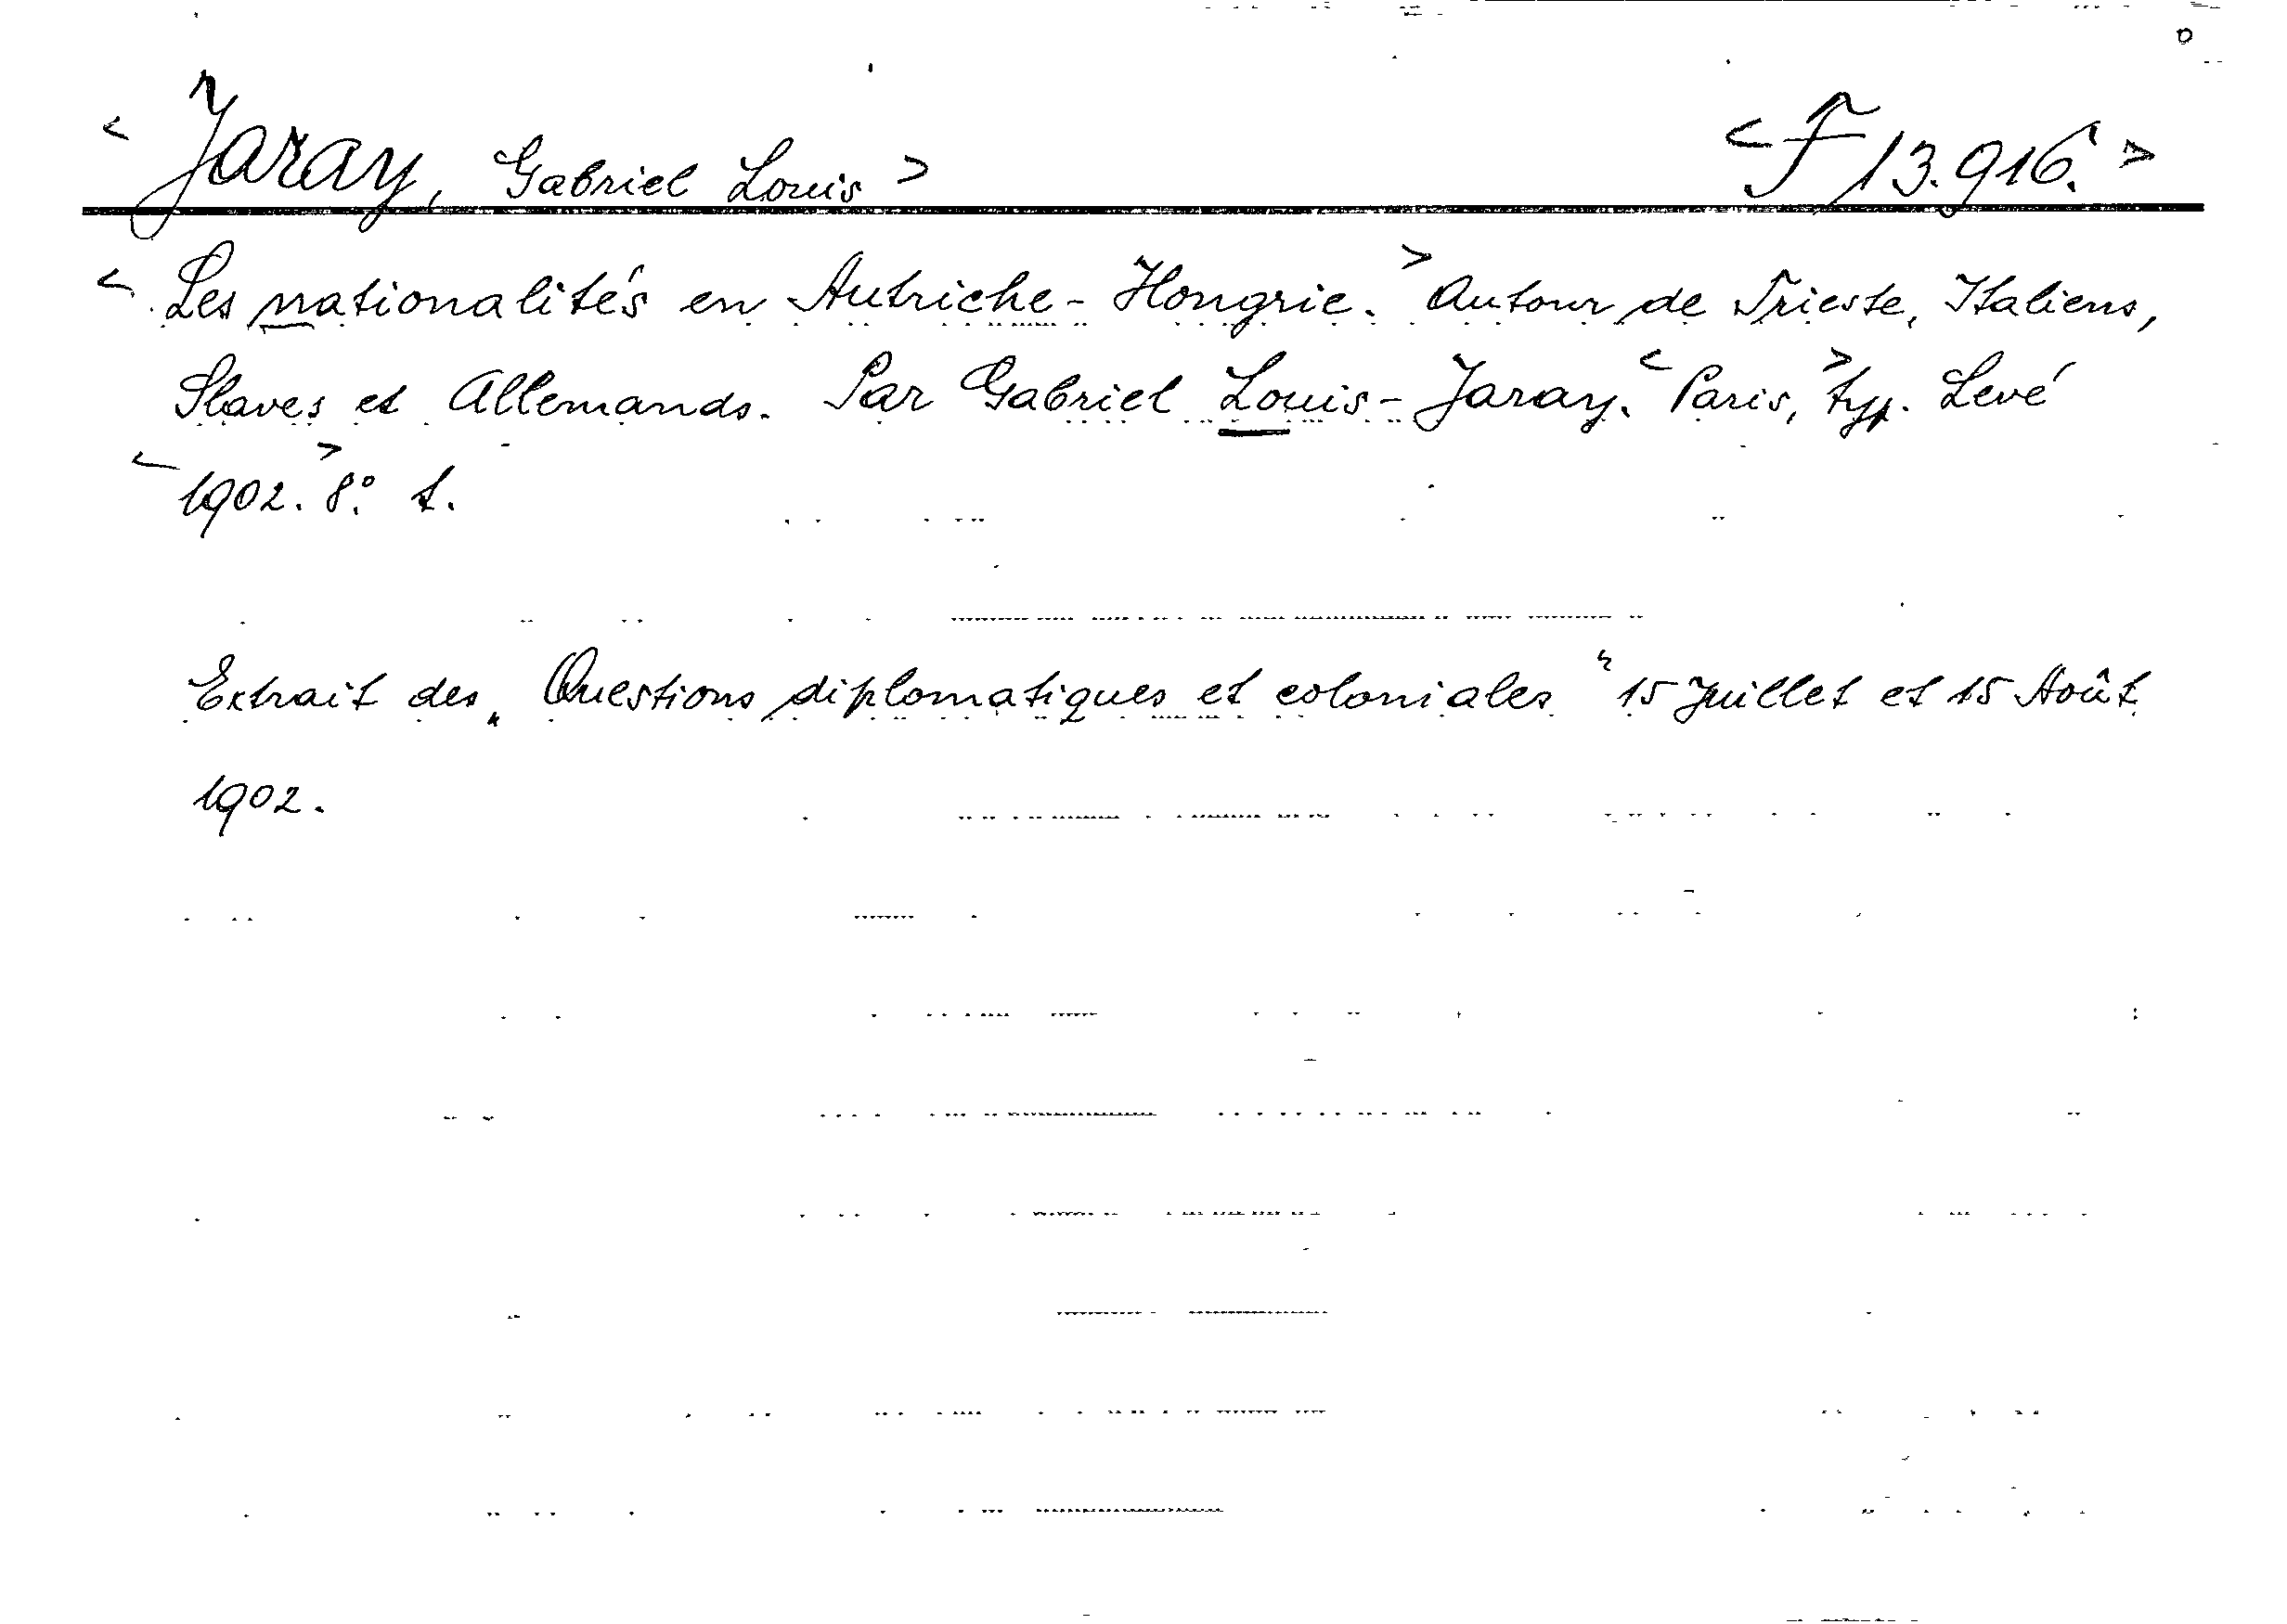 < Jaray, Gabriel Louis > < F 13.916. >
< Les nationalités en Autriche-Hongrie. > Autour de Trieste, Italiens,
Slaves et Allemands. Par Gabriel Louis-Jaray. < Paris, > typ. Levé
< 1902. > 8°. t.
Extrait des „Questions diplomatiques et coloniales“ 15 Juillet et 15 Août
1902.